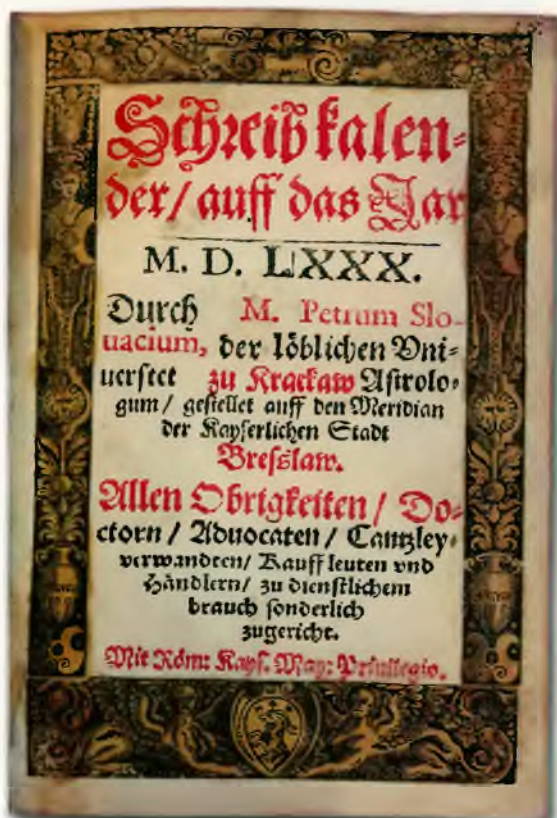 Schreib kalen=
der/ auff das Jar
M. D. LXXX.
Durch M. Petrum Slo-
uacium, der löblichen Vni=
uersitet zu Krackaw Astrolo=
gum / gestellet auff den Meridian
der Kayserlichen Stadt
Bresslaw.
Allen Obrigkeiten / Do=
ctorn / Aduocaten / Cantzley=
verwandten/ Kauffleuten vnd
Händlern/ zu dienstlichem
brauch sonderlich
zugericht.
Mit Röm: Kays. May: Priuilegio.